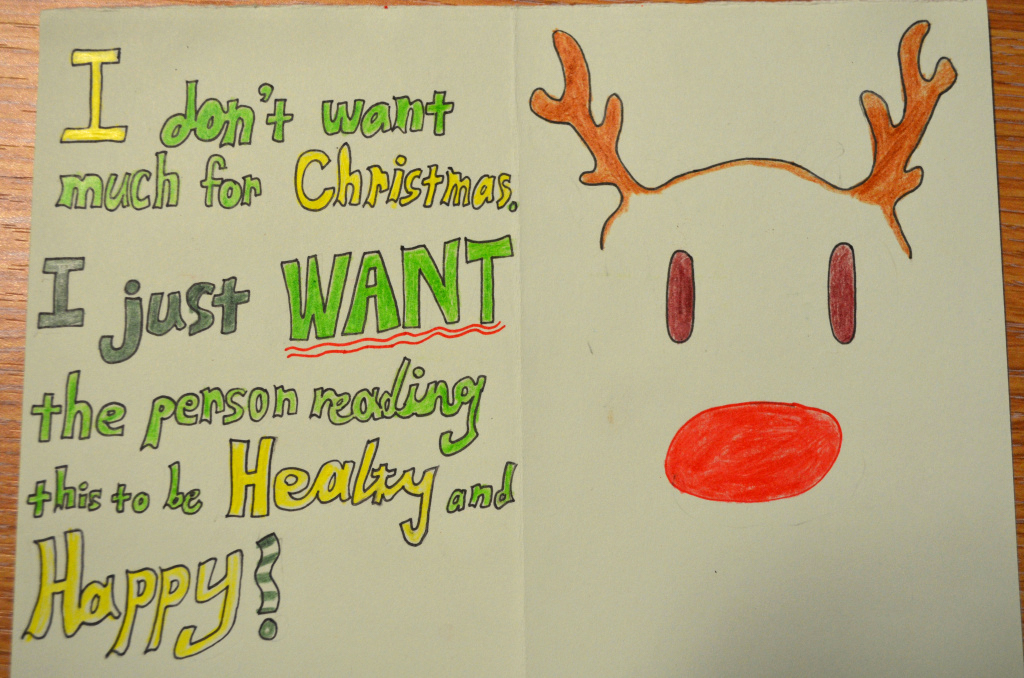 I don't want
much for Christmas.
I just WANT
the person reading
this to be Healty and
Happy!